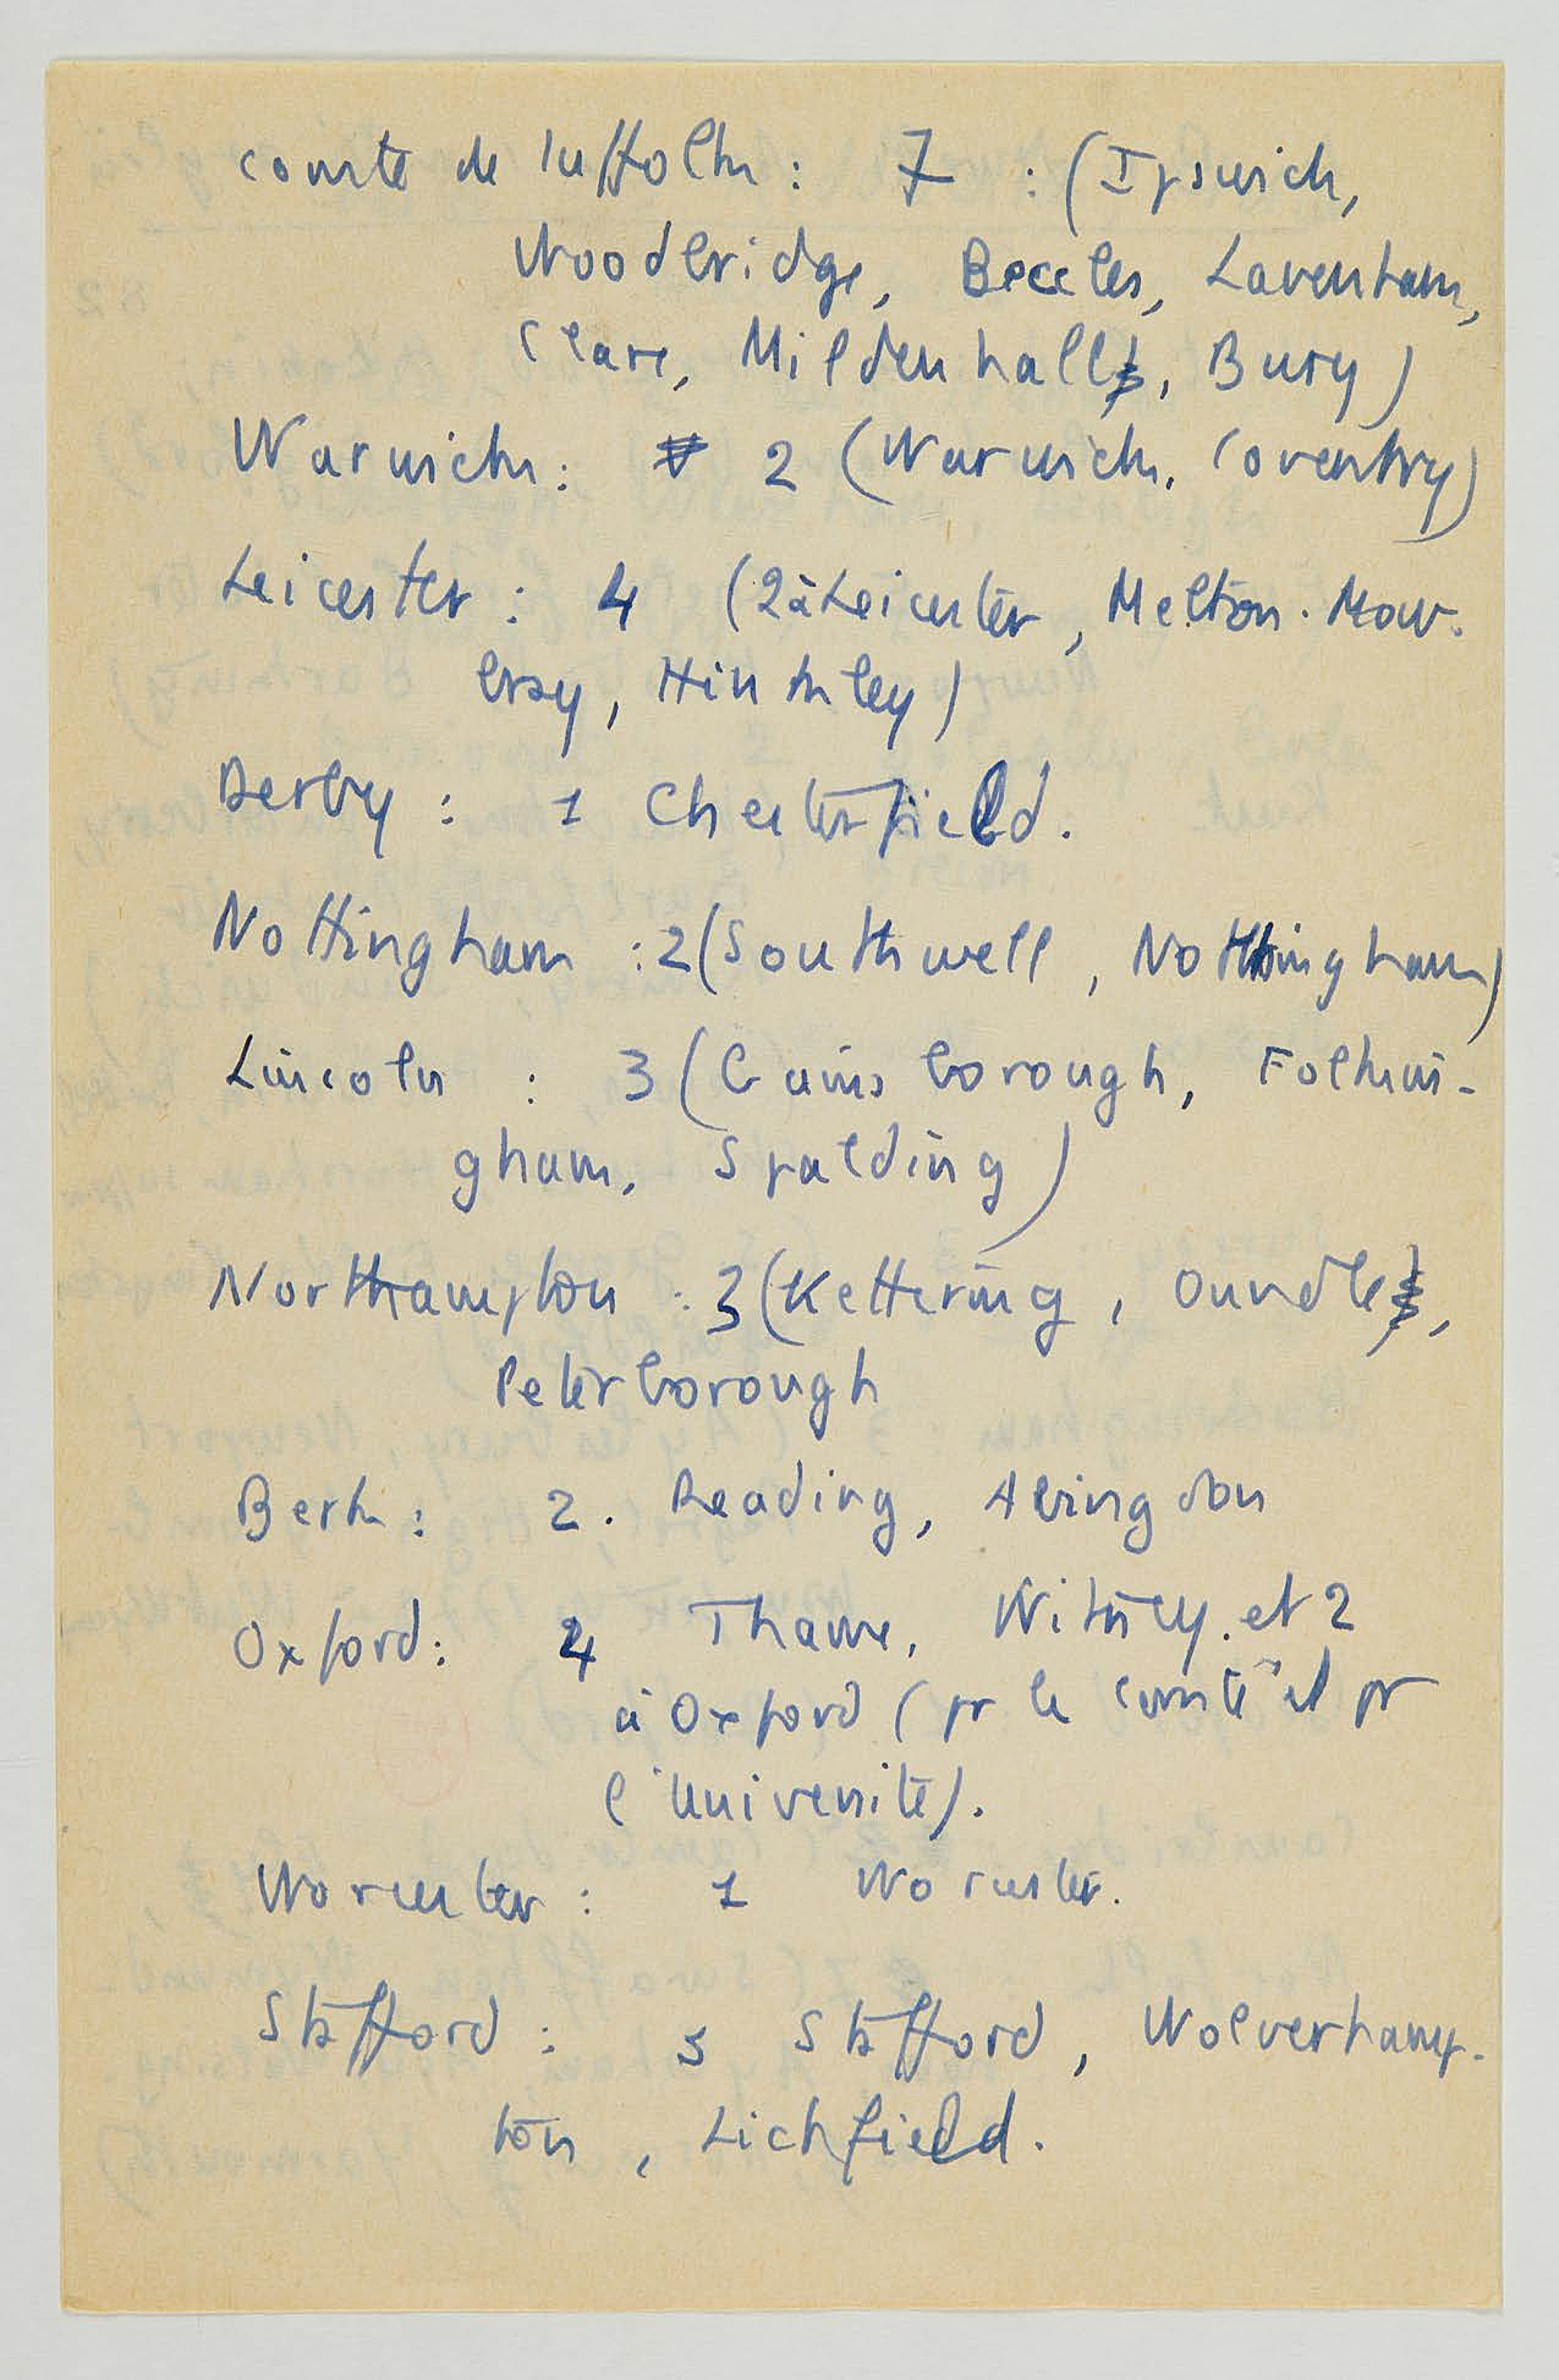 comté de Suffolk : 7 : (Ipswich,
Woodbridge, Beccles, Lavenham,
Clare, Mildenhall, Bury)
Warwick : 2 (Warwick, Coventry)
Leicester : 4 (2 à Leicester, Melton-Mow-
bray, Hinkley)
Derby : 1 Chesterfield.
Nottingham : 2 (Southwell, Nottingham)
Lincoln : 3 (Gainsborough, Folkin-
gham, Spalding)
Northampton : 3 (Kettering, Oundle,
Peterborough
Berk : 2. Reading, Abingdon
Oxford : 4 Thame, Witney et 2
à Oxford (pr le comté et pr
l'Université).
Worcester : 1 Worcester.
Stafford : 3 Stafford, Wolverhamp-
ton, Lichfield.